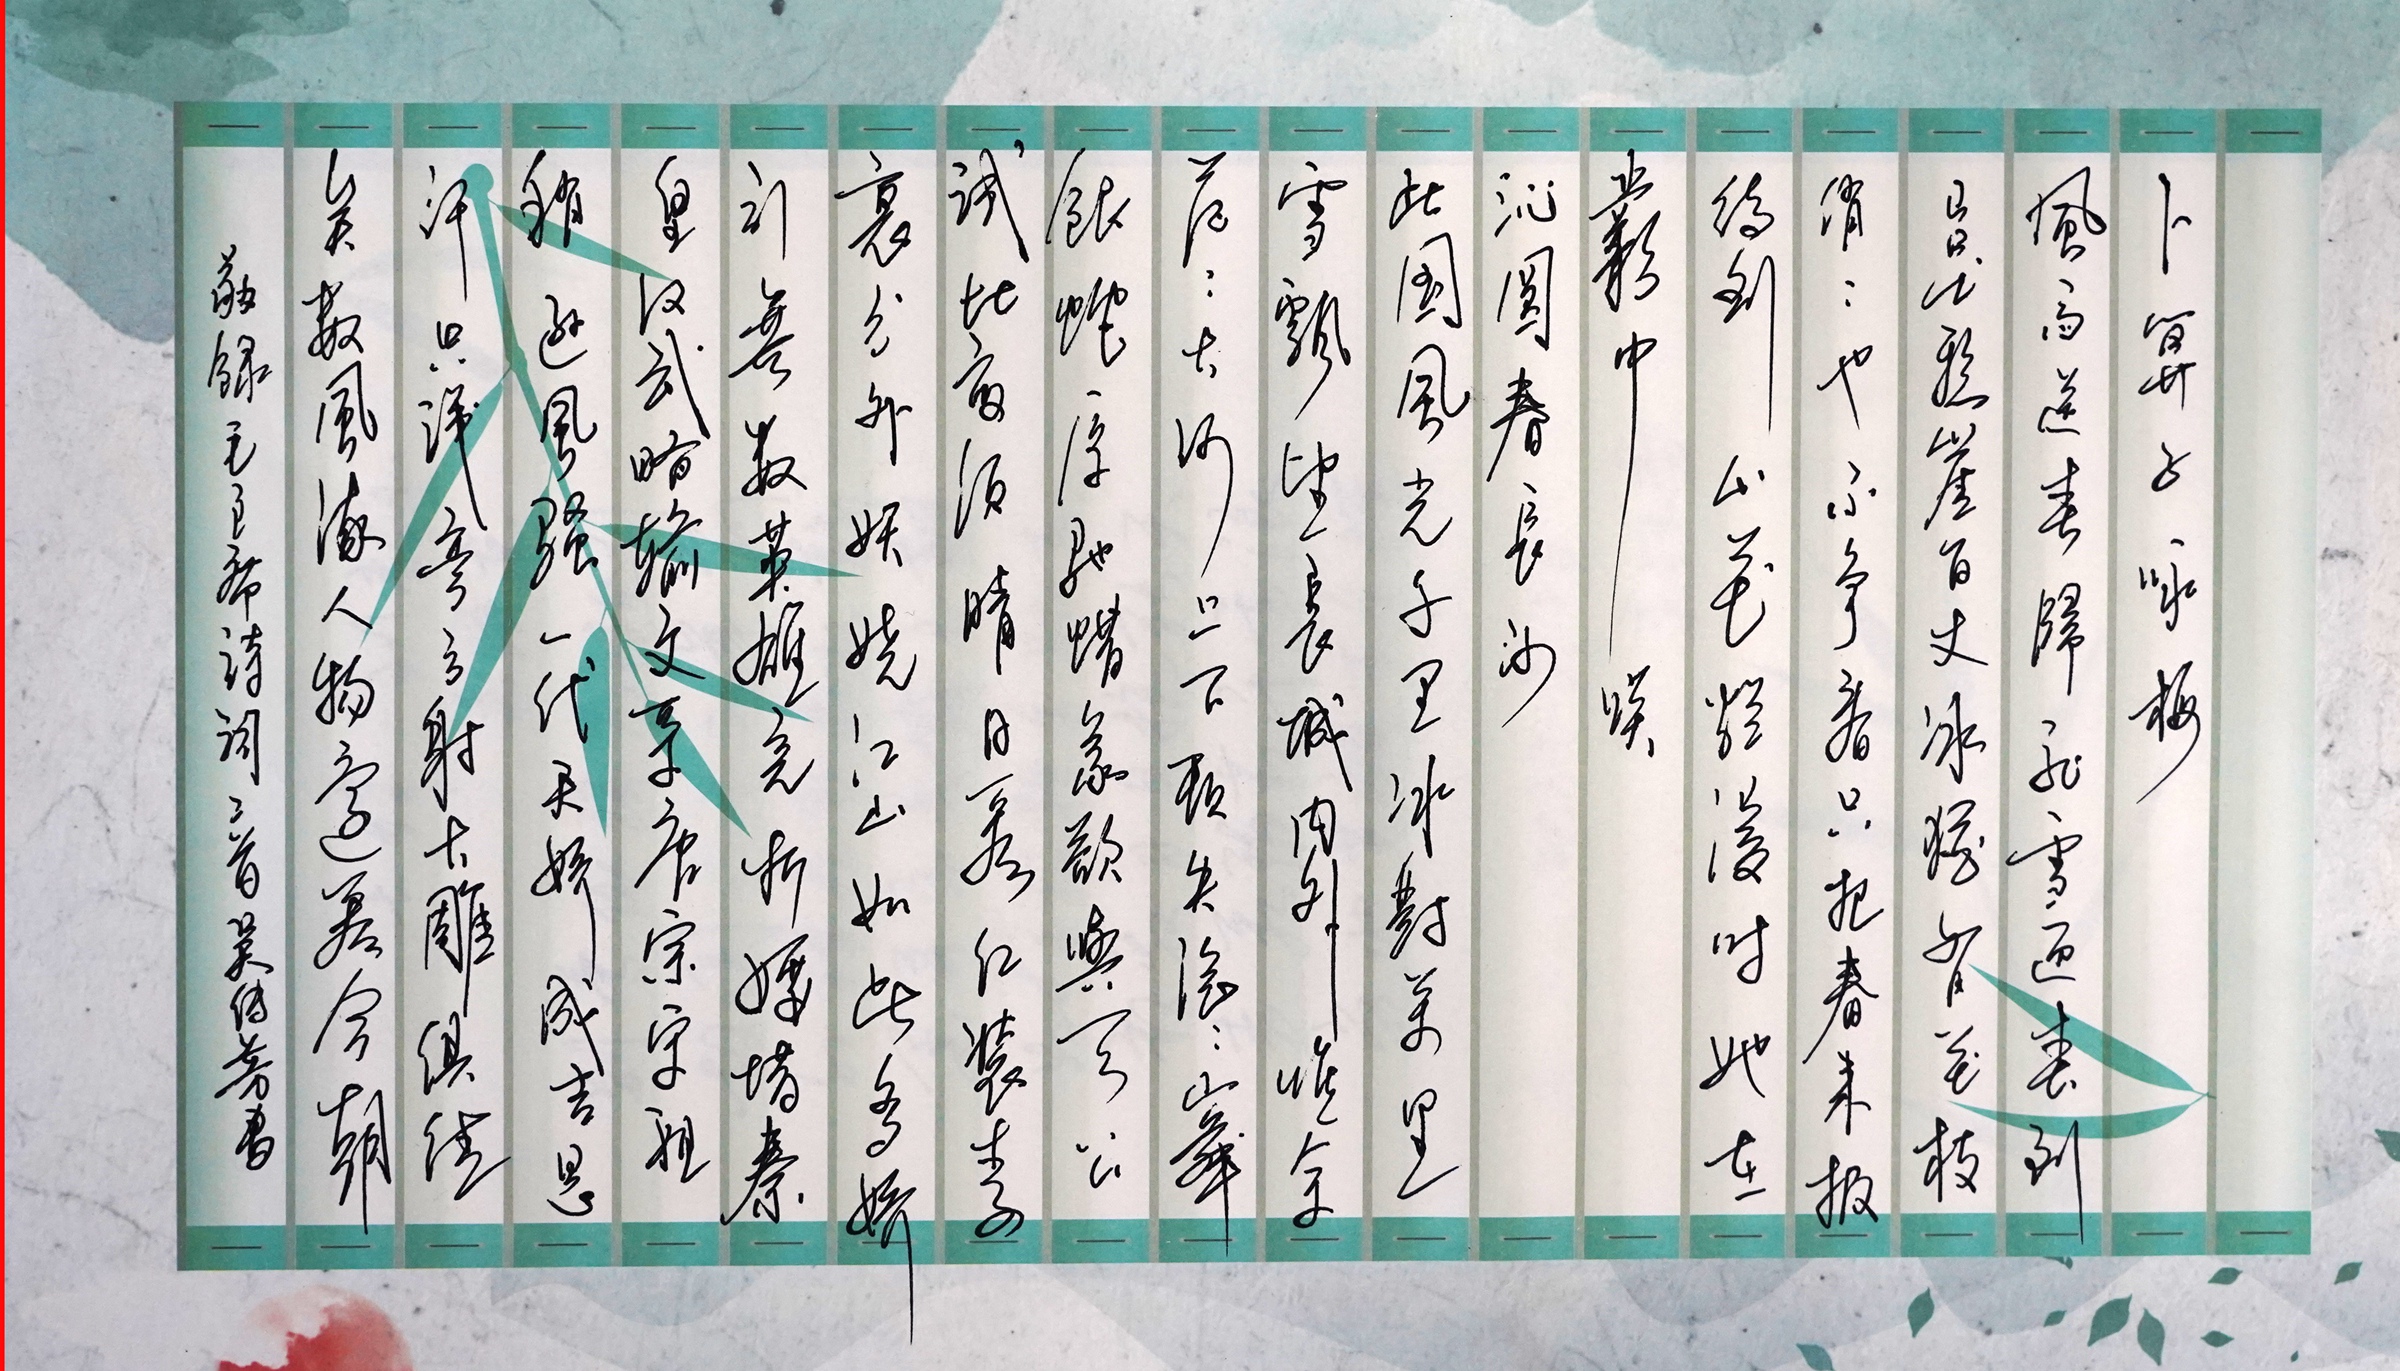 卜算子咏梅
風雨送春歸飛雪迎春到
已是懸崖百丈冰猶有花枝
俏：也不爭春只把春來報
待到山花爛漫時她在
叢中笑
沁園春長沙
北国風光千里冰封萬里
雪飄望長城内外惟余
莽：大河上下頓失滔：山舞
銀蛇原馳蠟象欲與天公
試比高須晴日看红装素
裹分外妖娆江山如此多娇
引無數英雄竞折腰惜秦
皇汉武略輸文采唐宗宋祖
稍逊風騷一代天娇成吉思
汗只识弯弓射大雕俱往
矣数風流人物还看今朝
敬録毛主席诗词二首吴传芳書